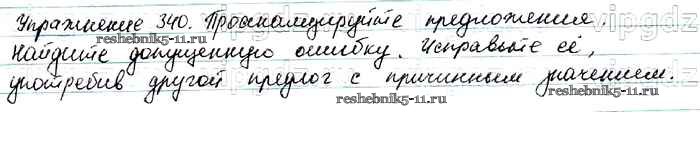 Упражнение 340. Проанализируйте предложения
Найдите допущенную ошибку. Исправьте её,
употребив другой предлог с причинным значением.
vipgdz
reshebnik5-11.ru
reshebnik5-11.ru
reshebnik5-11.ru